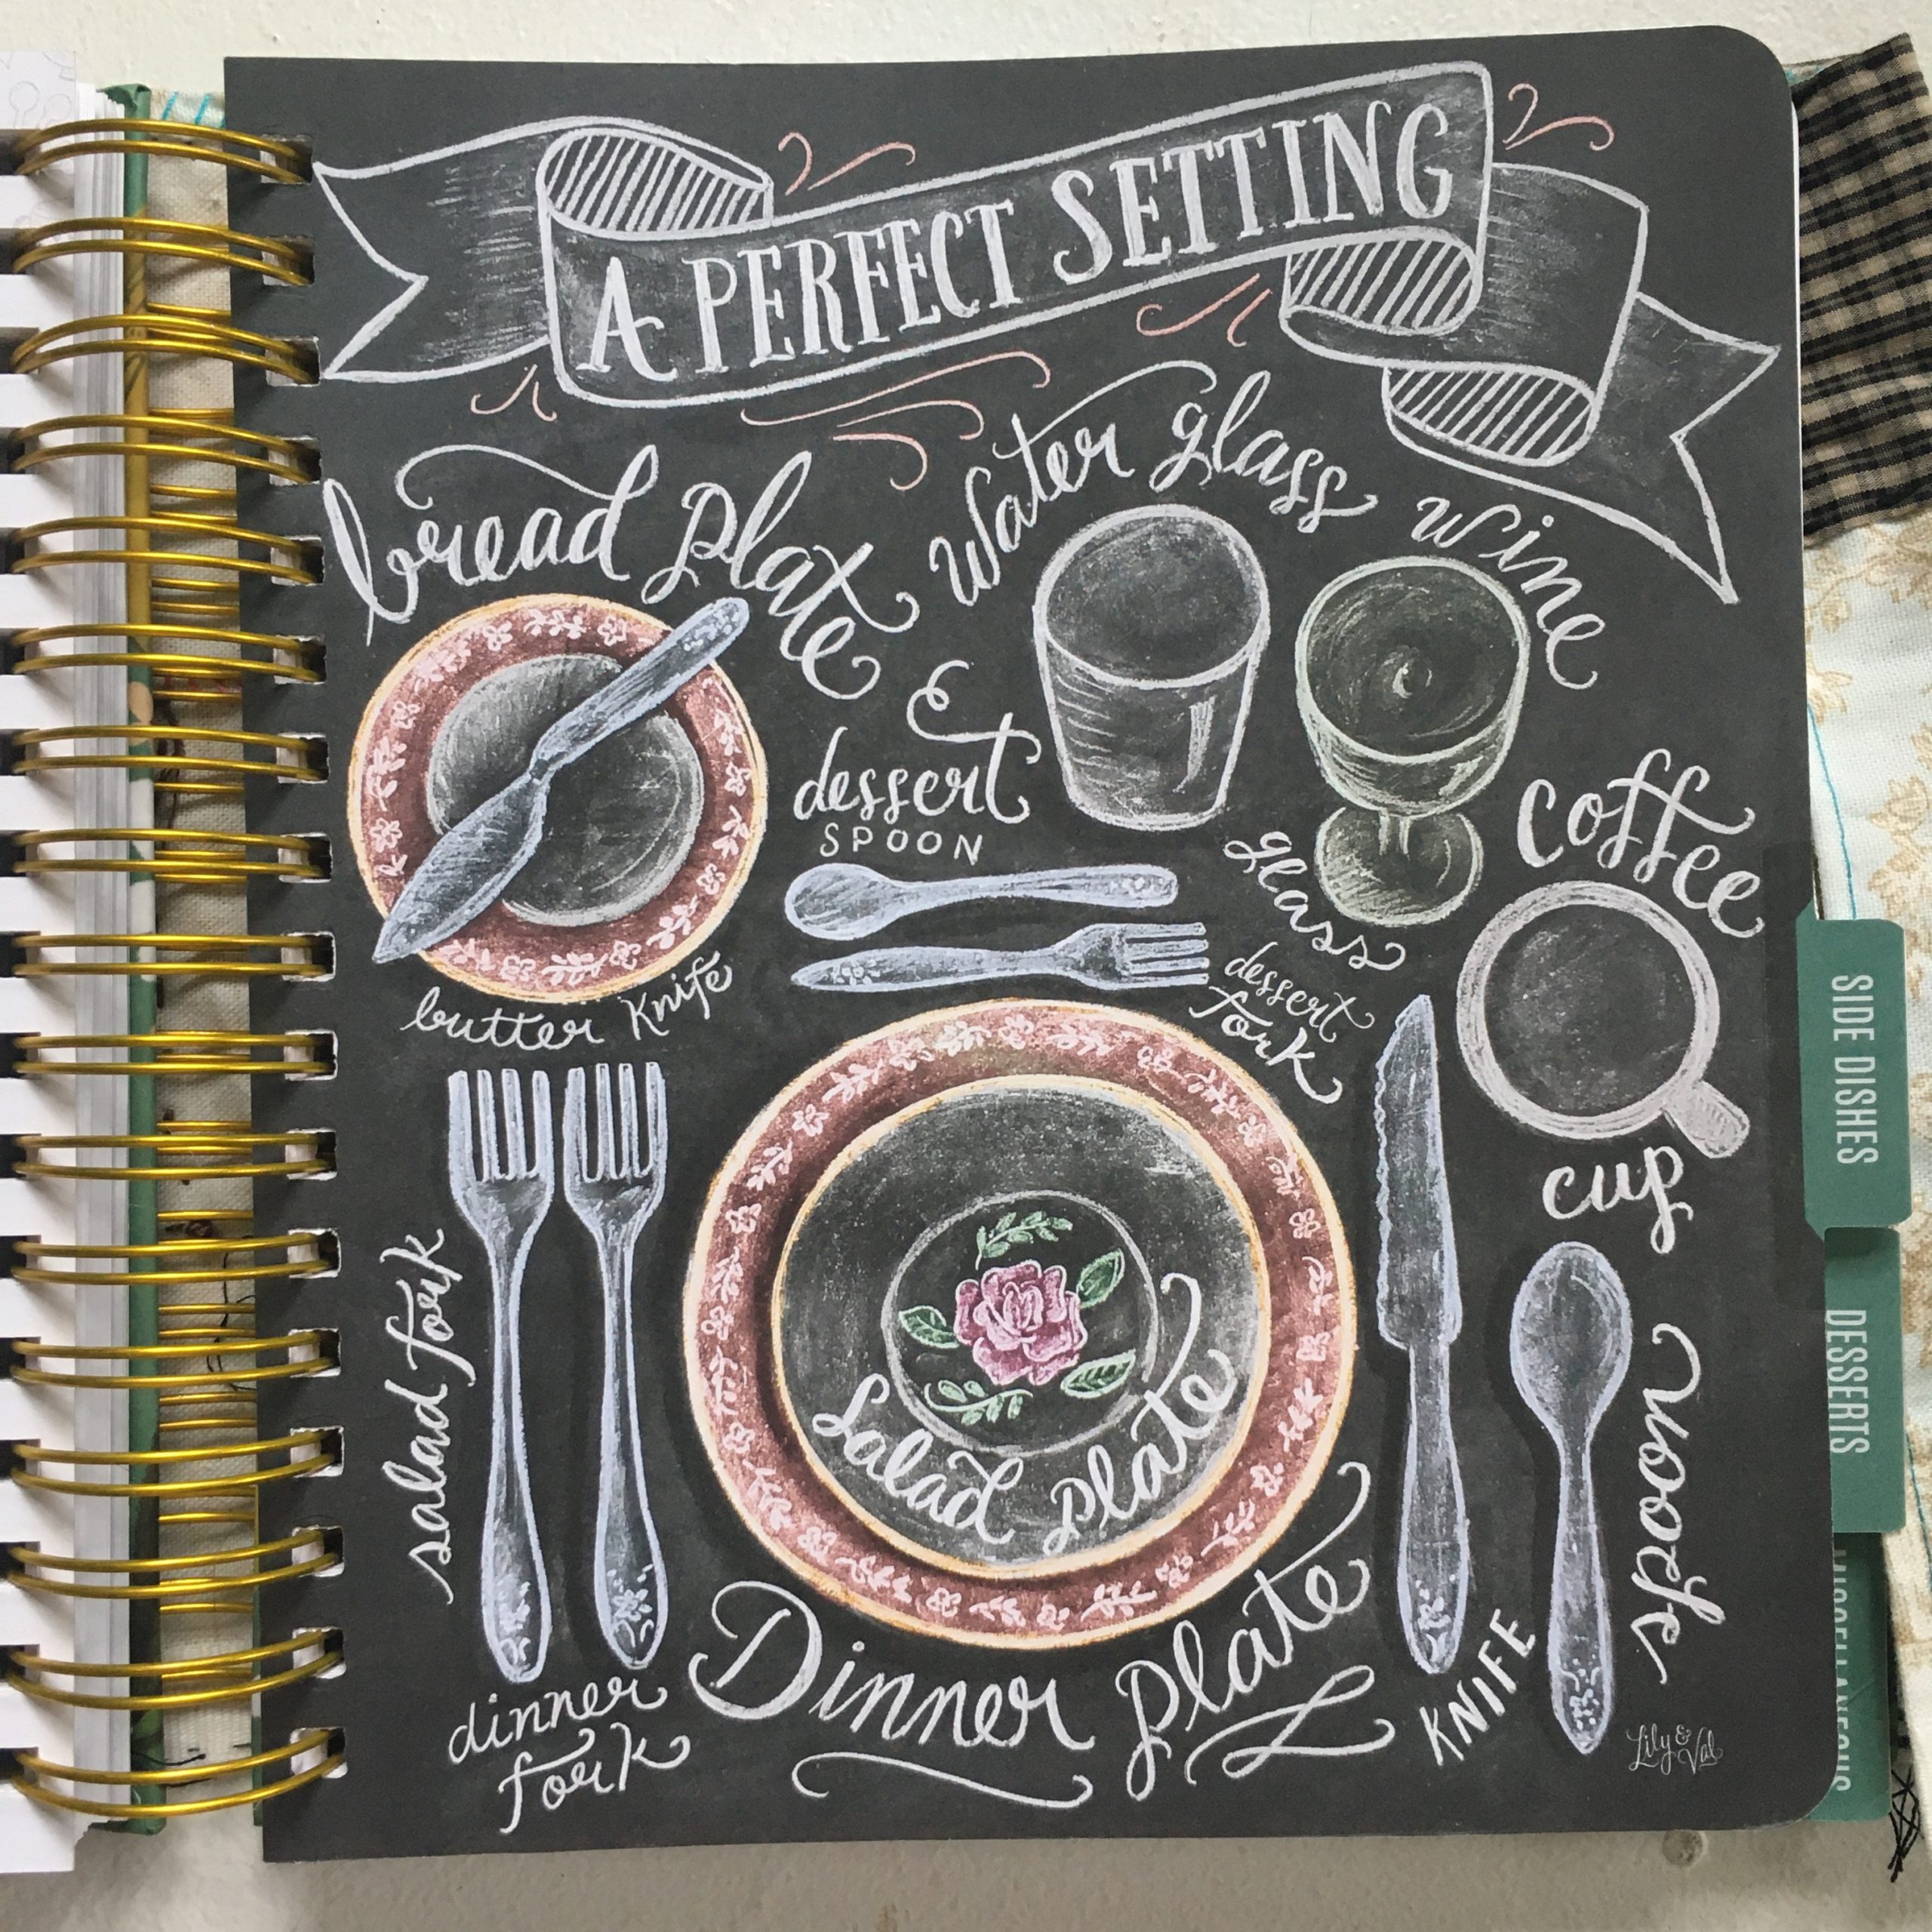 A PERFECT SETTING
bread plate
&
water glass
wine
glass
dessert
SPOON
coffee
cup
butter knife
dessert
fork
salad fork
Salad plate
Dinner plate
dinner
fork
KNIFE
spoon
Lily &
Val
SIDE DISHES
DESSERTS
MISCELLANEOUS